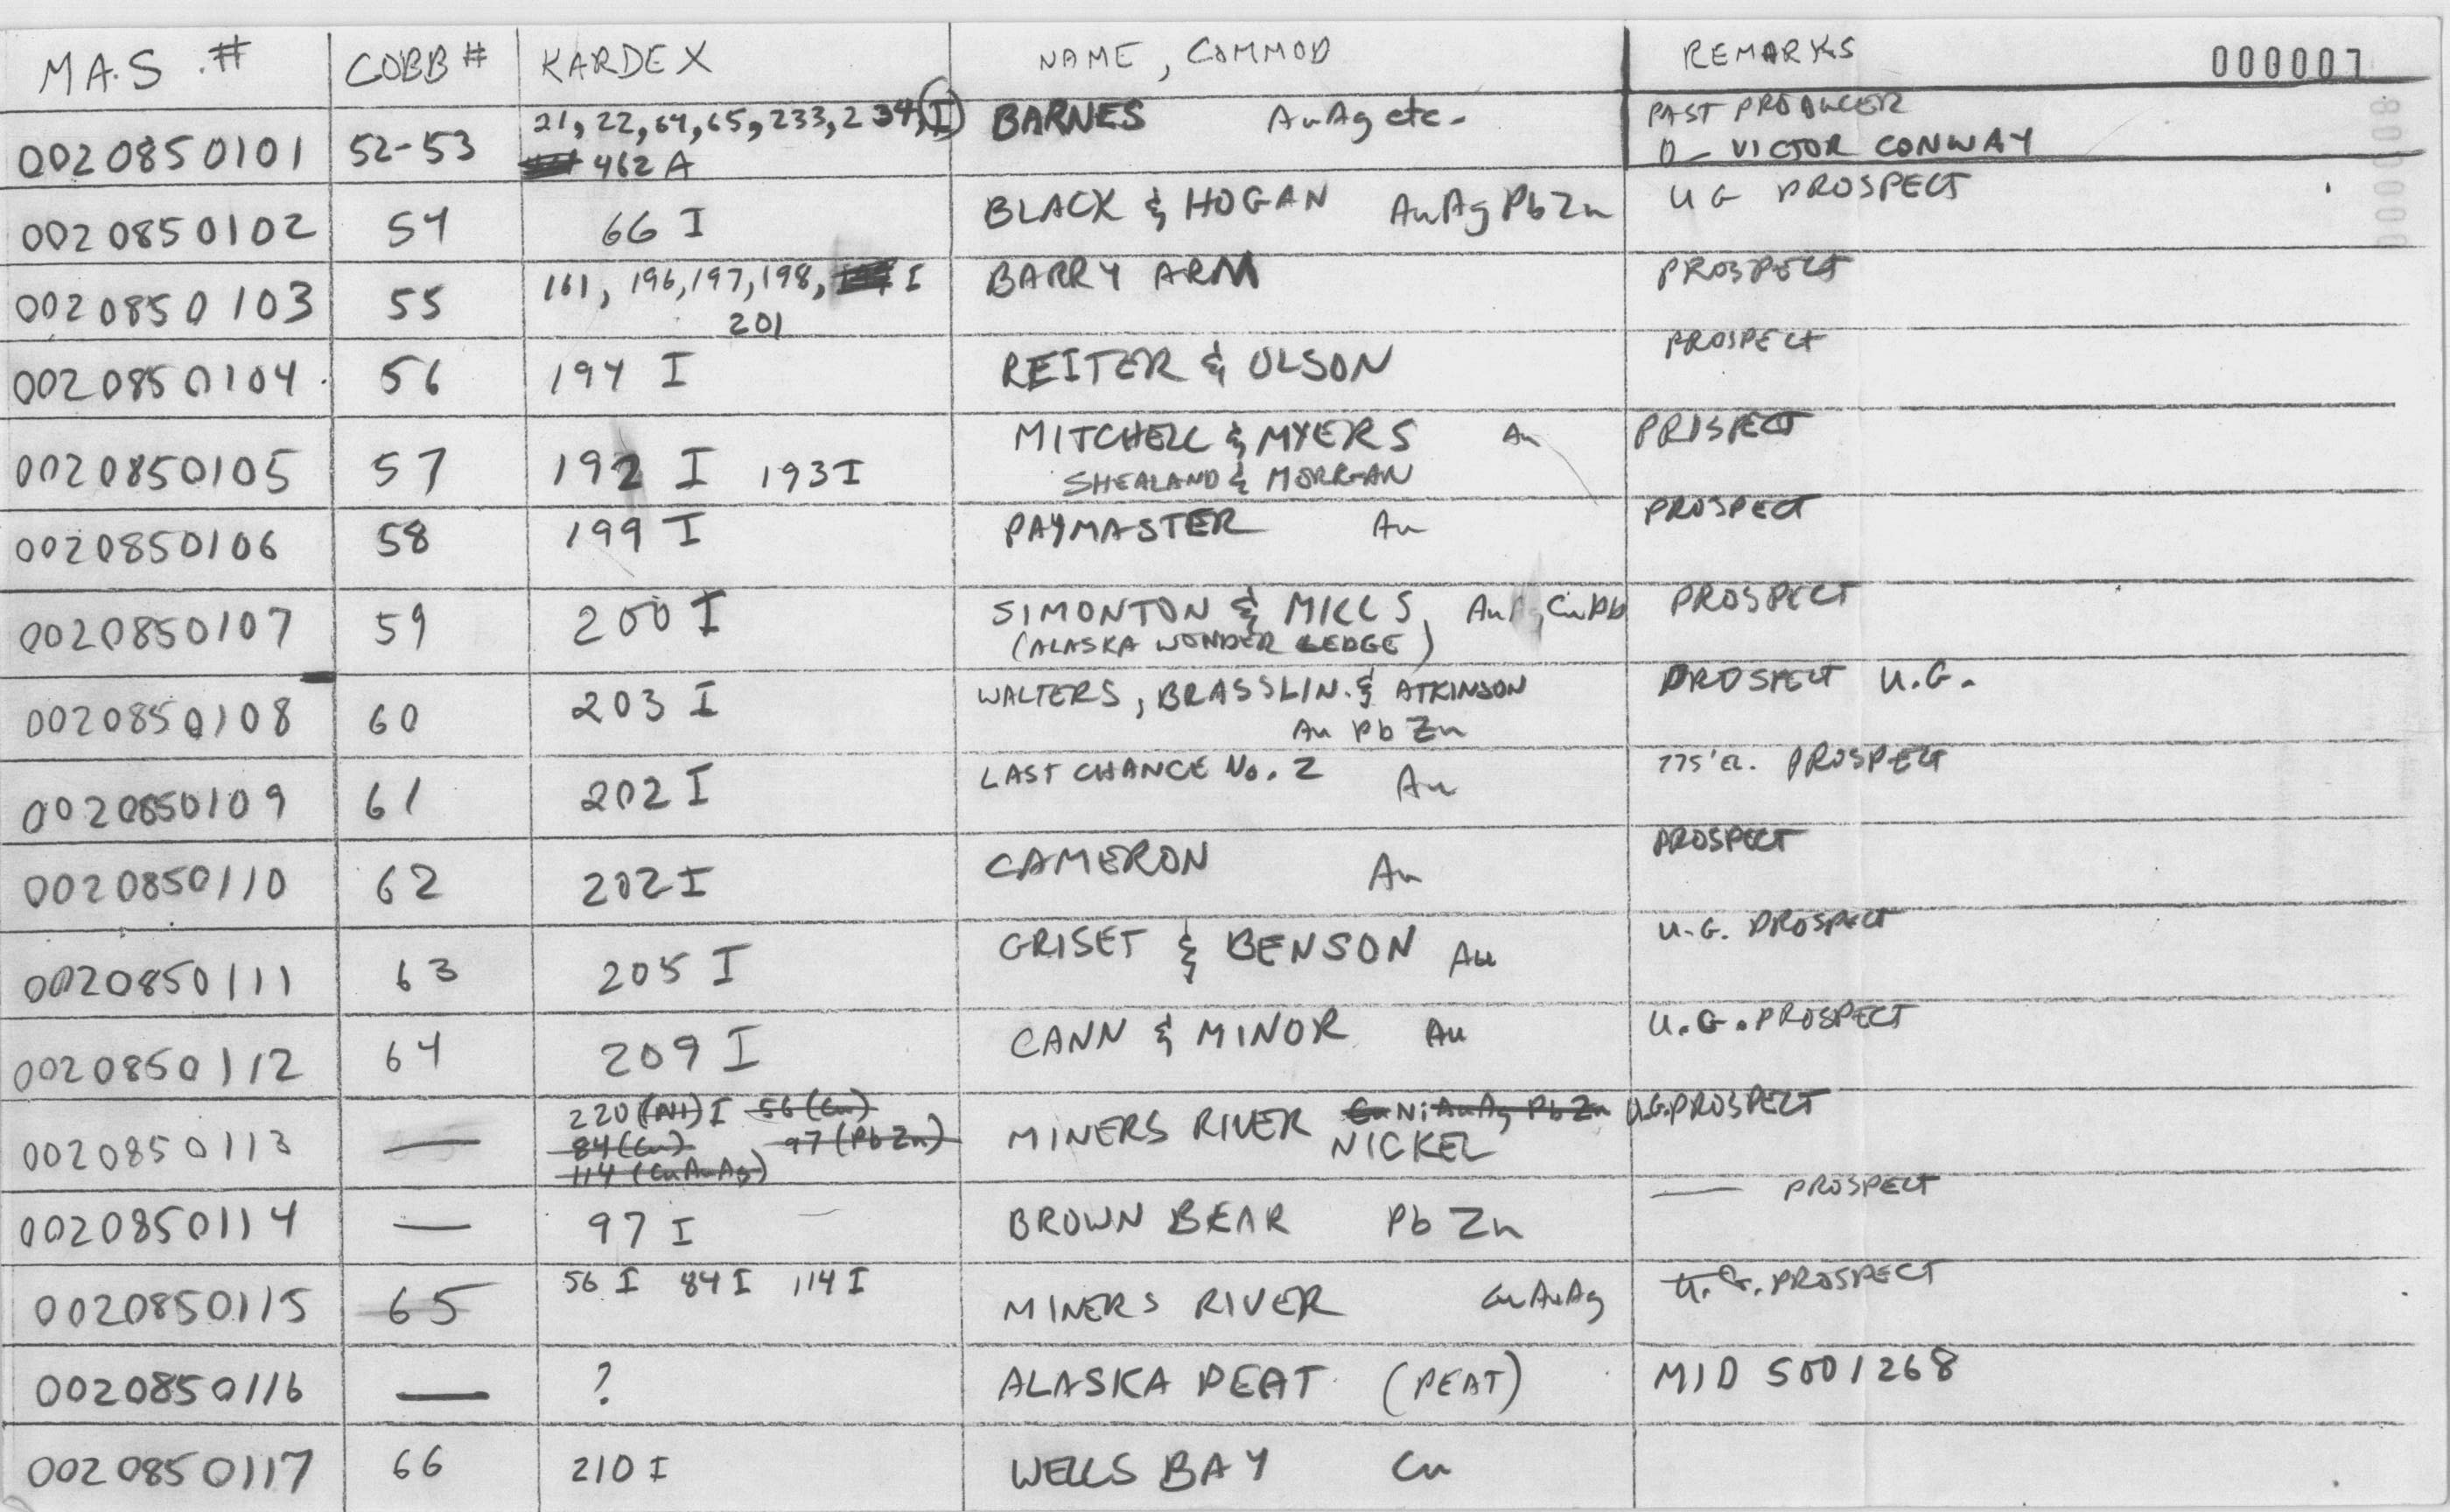 M.A.S. # COBB # KARDEX NAME, COMMOD REMARKS 000007
0020850101 52-53 21, 22, 64, 65, 233, 234, I BARNES Au Ag etc. PAST PRODUCER
462 A O - VICTOR CONWAY
0020850102 54 66 I BLACK & HOGAN Au Ag Pb Zn U G PROSPECT
0020850103 55 161, 196, 197, 198, I BARRY ARM PROSPECT
201
0020850104 56 194 I REITER & OLSON PROSPECT
0020850105 57 192 I 193 I MITCHELL & MYERS Au PROSPECT
SHEALAND & MORRGAN
0020850106 58 199 I PAYMASTER Au PROSPECT
0020850107 59 200 I SIMONTON & MILLS, Au Ag Cu Pb PROSPECT
(ALASKA WONDER LEDGE)
0020850108 60 203 I WALTERS, BRASSLIN. & ATKINSON PROSPECT U.G.
Au Pb Zn
0020850109 61 202 I LAST CHANCE No. 2 Au 775' EL. PROSPECT
0020850110 62 202 I CAMERON Au PROSPECT
0020850111 63 205 I GRISET & BENSON Au U.G. PROSPECT
0020850112 64 209 I CANN & MINOR Au U.G. PROSPECT
0020850113 — 220 (Ni) I 56 (Cu) MINERS RIVER Cu Ni Au Ag Pb Zn U.G. PROSPECT
84 (Cu) 97 (Pb Zn) NICKEL
114 (Cu Au Ag)
0020850114 — 97 I — BROWN BEAR Pb Zn — PROSPECT
0020850115 65 56 I 84 I 114 I MINERS RIVER Cu Au Ag U.G. PROSPECT
0020850116 — ? ALASKA PEAT (PEAT) MID 5001268
0020850117 66 210 I WELLS BAY Cu